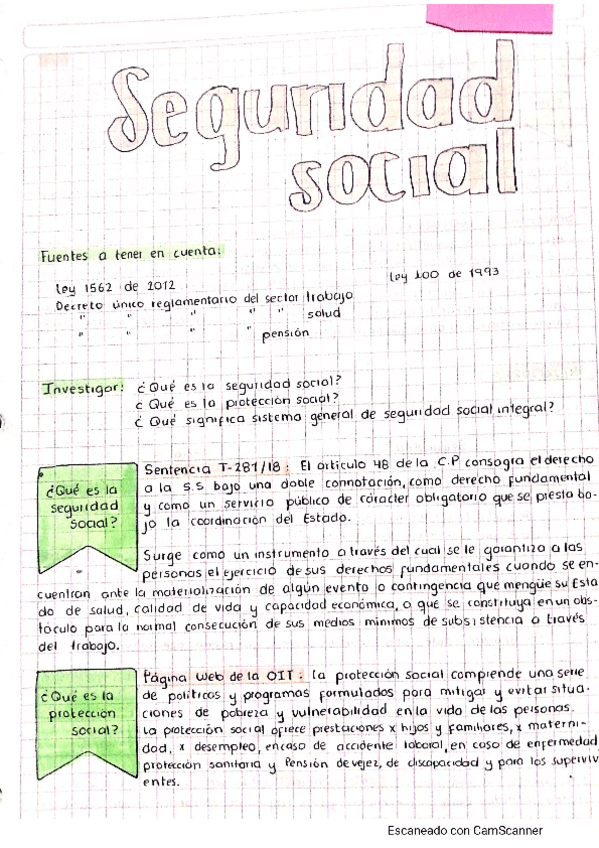 Seguridad
social
Fuentes a tener en cuenta:
ley 1562 de 2012
ley 100 de 1993
Decreto único reglamentario del sector trabajo
" " " " " salud
" " " " pensión
Investigar: ¿Qué es la seguridad social?
¿Qué es la protección social?
¿Qué significa sistema general de seguridad social integral?
¿Qué es la
seguridad
social?
Sentencia T-281/18: El artículo 48 de la C.P consagra el derecho
a la S.S bajo una doble connotación, como derecho fundamental
y como un servicio público de carácter obligatorio que se presta ba-
jo la coordinación del Estado.
Surge como un instrumento a través del cual se le garantiza a las
personas el ejercicio de sus derechos fundamentales cuando se en-
cuentran ante la materialización de algún evento o contingencia que mengüe su esta
do de salud, calidad de vida y capacidad económica, o que se constituya en un obs-
táculo para la normal consecución de sus medios mínimos de subsistencia a través
del trabajo.
¿Qué es la
protección
social?
Página web de la OIT: la protección social comprende una serie
de políticas y programas formulados para mitigar y evitar situa-
ciones de pobreza y vulnerabilidad en la vida de las personas.
la protección social ofrece prestaciones x hijos y familiares, x materni-
dad, x desempleo, en caso de accidente laboral, en caso de enfermedad
protección sanitaria y Pensión de vejez, de discapacidad y para los superviv
entes.
Escaneado con CamScanner